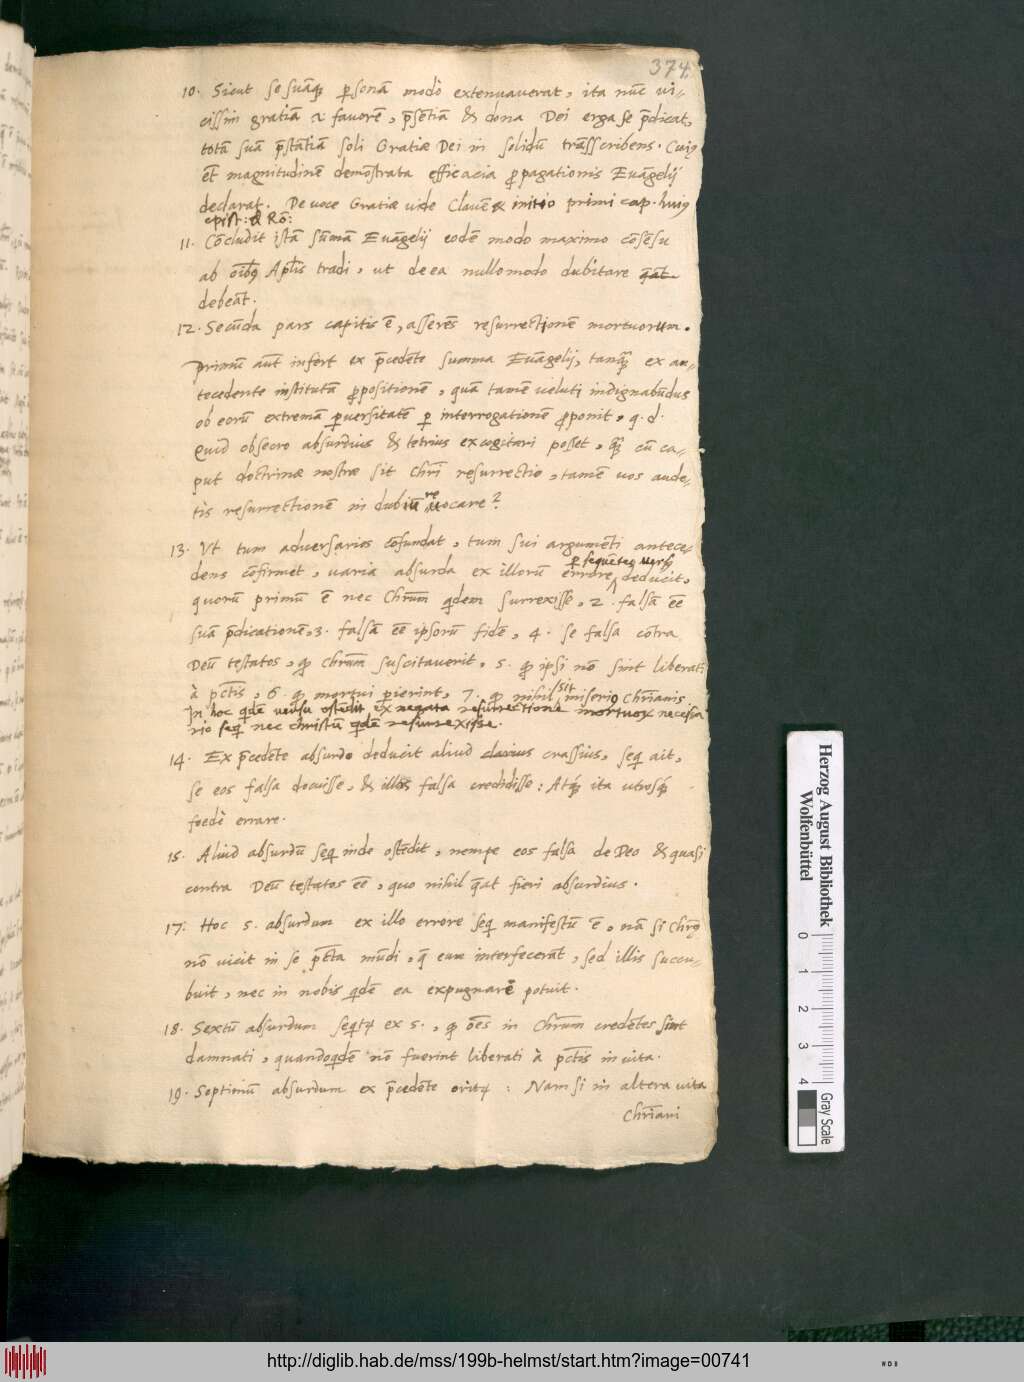 374.
10. Sicut se suāq; ꝑsonā modò extenuauerat, ita nūc ui-
cissim gratiā & fauorē, p̄sētiā & dona Dei erga se p̄dicat,
totā suā p̄stātiā soli Gratiæ Dei in solidū trāsscribens. Cuiꝰ
et magnitudinē demōstrata efficacia ꝓpagationis Euāgelij
declarat. De uoce Gratiæ uide Clauē & initio primi cap. huiꝰ
epist: & Rō:
11. Cōcludit istā sūmā Euāgelij eodē modo maximo cōsēsu
ab oībꝰ Apl̄is tradi, ut de ea nullo modo dubitare
debeāt.
12. Secūda pars capitis ē, asserēs resurrectionē mortuorum.
Primū aūt infert ex p̄cedēte summa Euāgelij, tanq̄ ex an-
tecedente institutā ꝓpositionē, quā tamē ueluti indignabūdus
ob eorū extremā ꝑuersitatē ꝑ interrogationē ꝓponit, q. d.
Quid obsecro absurdius & tetrius excogitari posset, q̄ cū ca-
put doctrinæ nostræ sit Chr̄i resurrectio, tamē uos aude-
tis resurrectionē in dubiū reuocare?
13. Vt tum aduersarios cōfundat, tum sui argumēti antece-
ꝑ sequētes uersꝰ
dens cōfirmet, uaria absurda ex illorū errore deducit,
quorū primū ē nec Chr̄um qdem surrexisse, 2. falsā eē
suā p̄dicationē, 3. falsā eē ipsorū fidē, 4. se falsa cōtra
Deū testatos, qꝫ Chr̄um suscitauerit, 5. qꝫ ipsi nō sint liberati
à pctīs, 6. qꝫ mortui pierint, 7. qꝫ nihil sit miseriꝰ Chr̄ianis.
In hoc qdē uersu ostēdit ex negata resurrectione mortuoꝝ necessa
rio seq nec christū qdē resurrexisse.
14. Ex p̄cedēte absurdo deducit aliud crassius, seq ait,
se eos falsa docuisse, & illos falsa credidisse: Atq; ita utrosq;
foedè errare.
15. Aliud absurdū seq inde ostēdit, nempe eos falsa de Deo & quasi
contra Deū testatos eē, quo nihil q̄at fieri absurdius.
17. Hoc 5. absurdum ex illo errore seq manifestū ē, nā si Chr̄ꝰ
nō uicit in se pctā mūdi, q̄ eum interfecerāt, sed illis succu-
buit, nec in nobis qdē ea expugnare potuit.
18. Sextū absurdum seqtꝛ ex 5., qꝫ oēs in Chr̄um credētes sint
damnati, quandoqdē nō fuerint liberati à pctīs in uita.
19. Septimū absurdum ex p̄cedēte oritꝛ: Nam si in altera uita
Chr̄iani
Herzog August Bibliothek
Wolfenbüttel
0 1 2 3 4
Gray Scale
http://diglib.hab.de/mss/199b-helmst/start.htm?image=00741
WDB